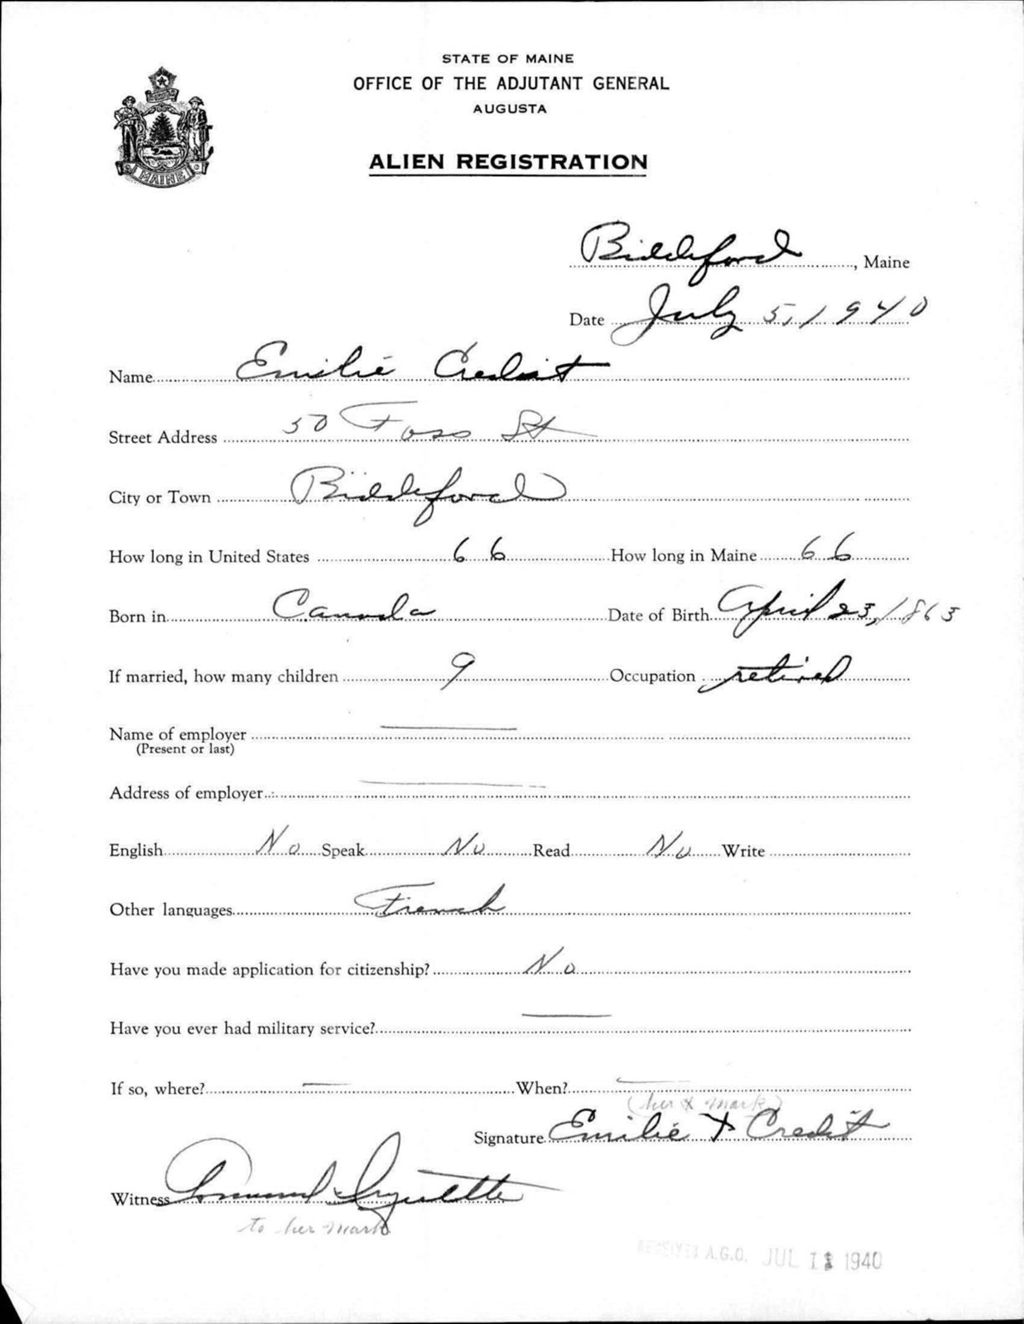 STATE OF MAINE
OFFICE OF THE ADJUTANT GENERAL
AUGUSTA
ALIEN REGISTRATION
MAINE
Biddeford, Maine
Date July 5, 1940
Name Emilié Credit
Street Address 50 Foss St
City or Town Biddeford
How long in United States 66 How long in Maine 66
Born in Canada Date of Birth April 23, 1863
If married, how many children 9 Occupation retired
Name of employer
(Present or last)
Address of employer
English No Speak No Read No Write
Other languages French
Have you made application for citizenship? No
Have you ever had military service?
If so, where? When?
(her x mark)
Signature Emilié X Credit
Witness
to her mark
RECEIVED A.G.O. JUL 1940